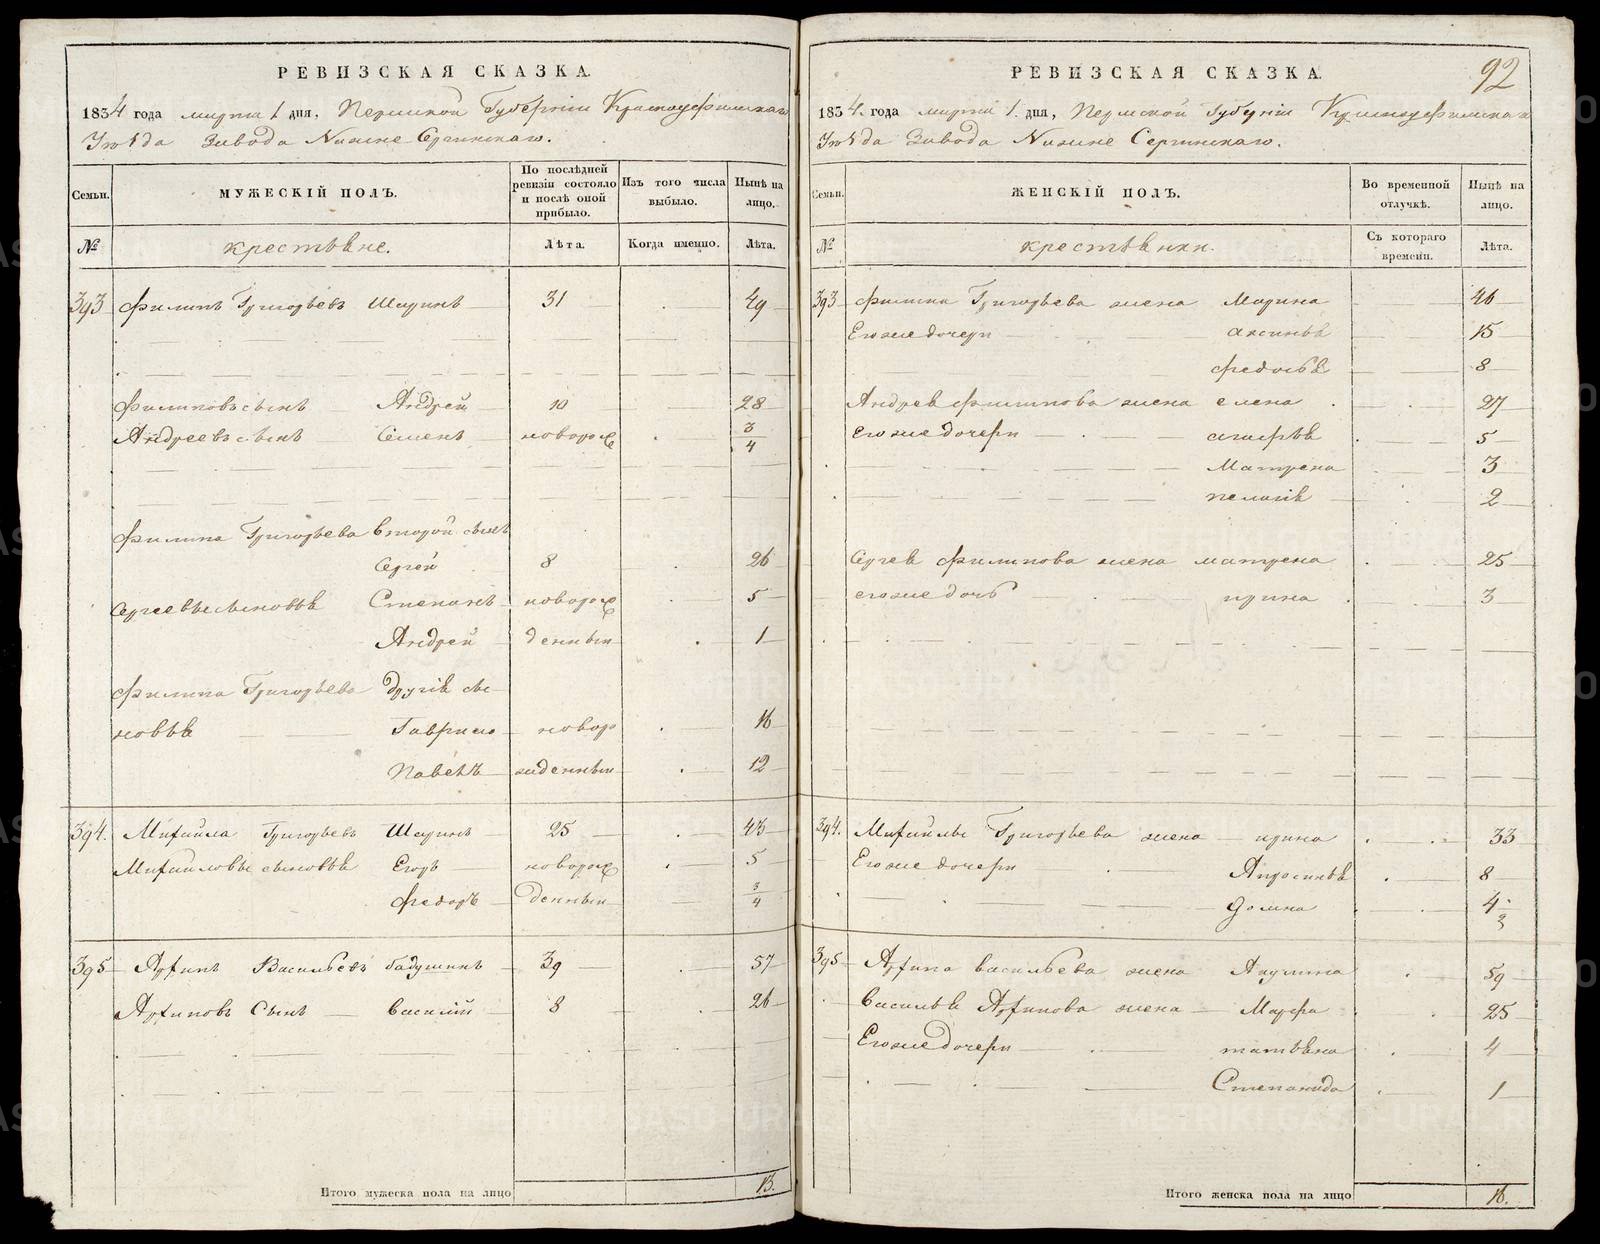 РЕВИЗСКАЯ СКАЗКА.
1834 года марта 1 дня, Пермской Губерніи Красноуфимскаго
Уѣзда Завода Нижне Сергинскаго.
Семьи. МУЖЕСКІЙ ПОЛЪ. По послѣдней ревизіи состояло и послѣ оной прибыло. Изъ того числа выбыло. Нынѣ на лицо.
№ крестьяне. Лѣта. Когда именно. Лѣта.
393 Филипъ Григорьевъ Шаринъ 31 49
Филиповъ сынъ Андрей 10 28
Андреевъ сынъ Семенъ новорож 3/4
Филипа Григорьева второй сынъ
Сергей 8 26
Сергеевы сыновья Степанъ новорож 5
Андрей денныи 1
Филипа Григорьева другіе сы
новья Гаврило новоро 16
Павелъ жденныи 12
394. Михайла Григорьевъ Шаринъ 25 43
Михайловы сыновья Егоръ новорож 5
Федоръ денныи 3/4
395 Архипъ Васильевъ Бадушинъ 39 57
Архиповъ Сынъ Василій 8 26
Итого мужеска пола на лицо 13.
92
РЕВИЗСКАЯ СКАЗКА.
1834. года марта 1. дня, Пермской Губерніи Красноуфимскаго
Уѣзда Завода Нижне Сергинскаго.
Семьи. ЖЕНСКІЙ ПОЛЪ. Во временной отлучкѣ. Нынѣ на лицо.
№ крестьянки. Съ котораго времени. Лѣта.
393 Филипа Григорьева жена Марина 46
Его же дочери аксинья 15
федосья 8
Андрея Филипова жена елена 27
его же дочери агафья 5
Матрена 3
пелагія 2
Сергея Филипова жена матрена 25
его же дочь ирина 3
394. Михайлы Григорьева жена ирина 33
Его же дочери Апросинья 8
домна 4
395 Архипа васильева жена Акулина 59
Василья Архипова жена Марфа 25
Его же дочери татьяна 4
Степанида 1
Итого женска пола на лицо 16.
METRIKI.GASO-URAL.RU